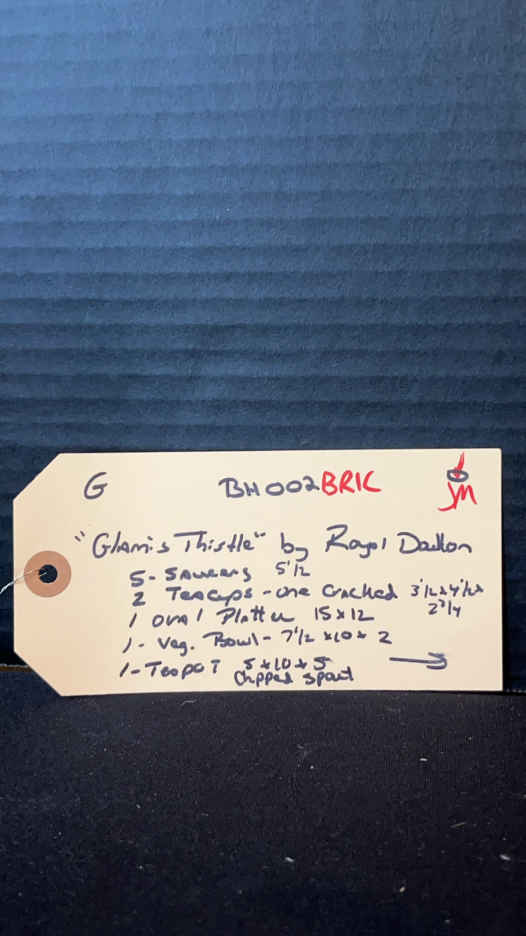 G BH002BRIC JM
"Glamis Thistle" by Royal Doulton
5 - Saucers 5 1/2
2 Teacups - one Cracked 3 1/2 x 4 1/2 x 2 3/4
1 oval Platter 15 x 12
1 - Veg. Bowl - 7 1/2 x 10 x 2
1 - Teapot 5 x 10 x 5
Chipped spout →